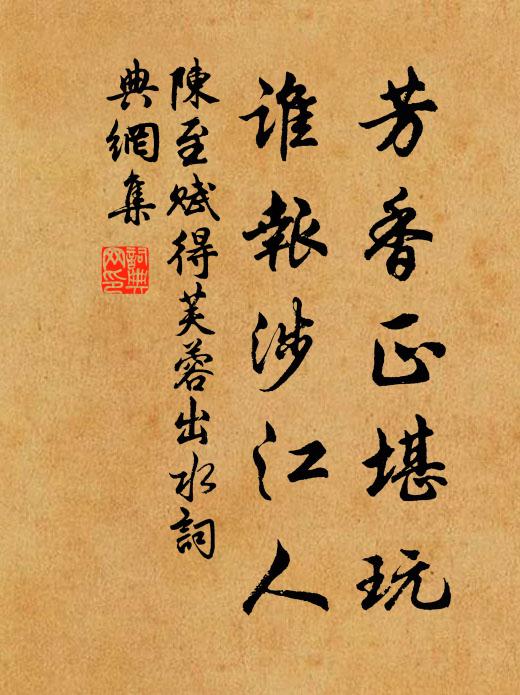 芳香正堪玩
誰報涉江人
陳至賦得芙蓉出水詞
典網集
詞典網印